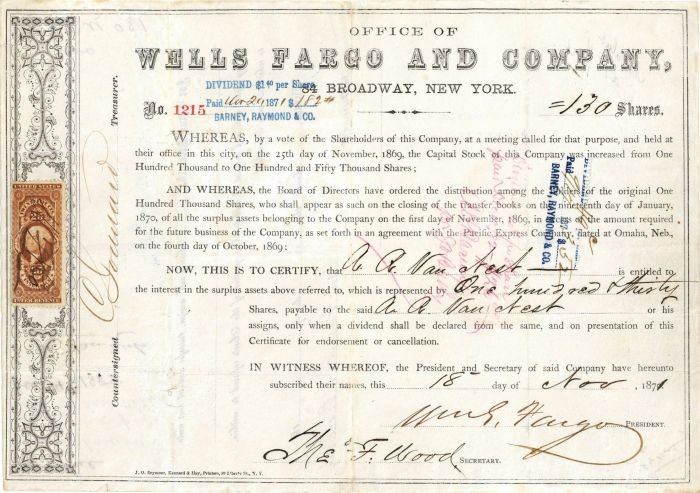 OFFICE OF
WELLS FARGO AND COMPANY,
84 BROADWAY, NEW YORK.
DIVIDEND $1 40 per Share
Paid Nov 24 1871 $ 182 00
BARNEY, RAYMOND & CO.
No. 1215
=130 Shares.
WHEREAS, by a vote of the Shareholders of this Company, at a meeting called for that purpose, and held
at their office in this city, on the 25th day of November, 1869, the Capital Stock of this Company was increased from One
Hundred Thousand to One Hundred and Fifty Thousand Shares;
AND WHEREAS, the Board of Directors have ordered the distribution among the holders of the original One
Hundred Thousand Shares, who shall appear as such on the closing of the transfer books on the nineteenth day of January,
1870, of all the surplus assets belonging to the Company on the first day of November, 1869, in excess of the amount required
for the future business of the Company, as set forth in an agreement with the Pacific Express Company, dated at Omaha, Neb.,
on the fourth day of October, 1869;
NOW, THIS IS TO CERTIFY, that A. R. Van Nest is entitled to
the interest in the surplus assets above referred to, which is represented by One hundred thirty
Shares, payable to the said A. R. Van Nest or his
assigns, only when a dividend shall be declared from the same, and on presentation of this
Certificate for endorsement or cancellation.
IN WITNESS WHEREOF, the President and Secretary of said Company have hereunto
subscribed their names, this 18 day of Nov, 1871
Wm G. Fargo PRESIDENT.
Theo F. Wood, SECRETARY.
Countersigned
Treasurer.
Paid 187 $
BARNEY, RAYMOND & CO.
UNITED STATES
INTER. REVENUE
J. O. Seymour, Kennard & Hay, Printers, 89 Liberty St., N. Y.